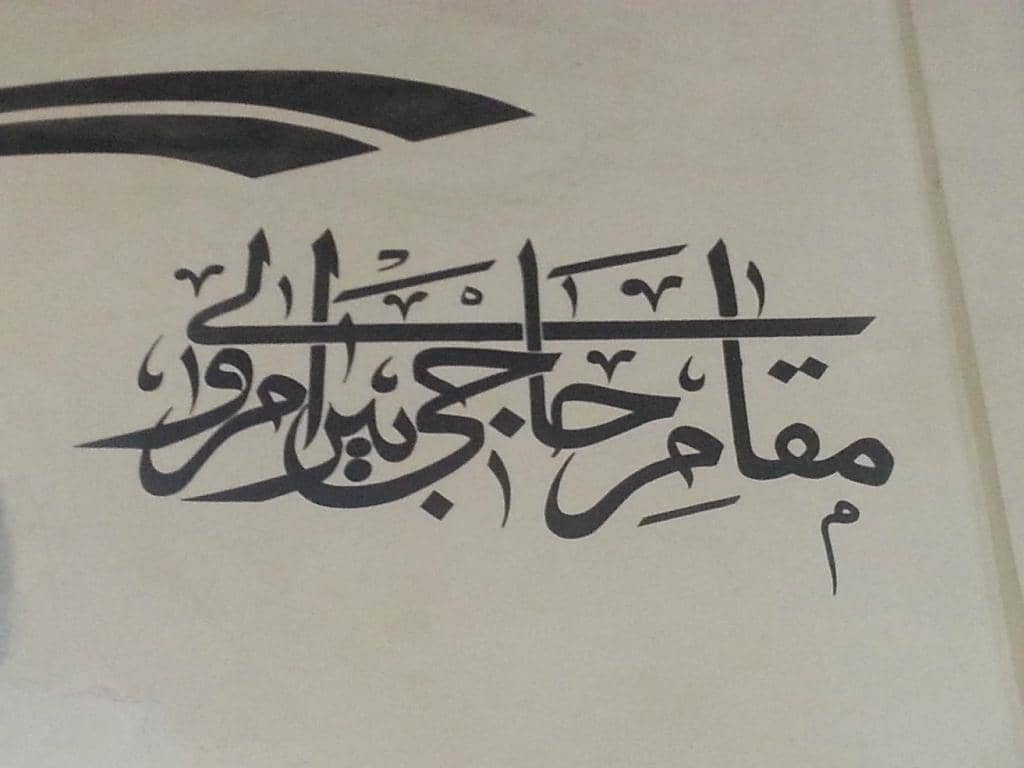 مقامِ حاجی بیرام ولی